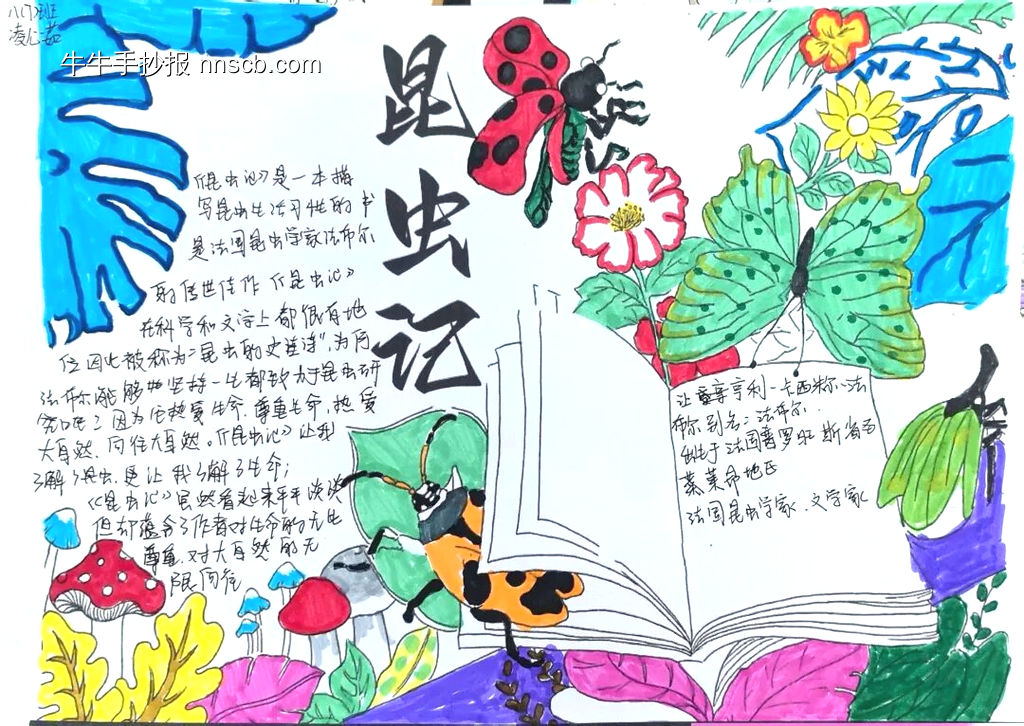 八(7)班
凌心茹
牛牛手抄报 nnscb.com
昆虫记
《昆虫记》是一本描
写昆虫生活习性的书
是法国昆虫学家法布尔
的传世佳作《昆虫记》
在科学和文学上都很有地
位因此被称为"昆虫的史诗",为何
法布尔能够坚持一生都致力于昆虫研
究呢?因为他热爱生命,尊重生命,热爱
大自然,向往大自然。《昆虫记》让我
了解了昆虫,更让我了解了生命;
《昆虫记》虽然看起来平平淡淡
但却蕴含了作者对生命的无比
尊重,对大自然的无
限向往
让·亨利·卡西米尔·法
布尔别名:法布尔
生于法国普罗旺斯省的
莱
法国昆虫学家、文学家